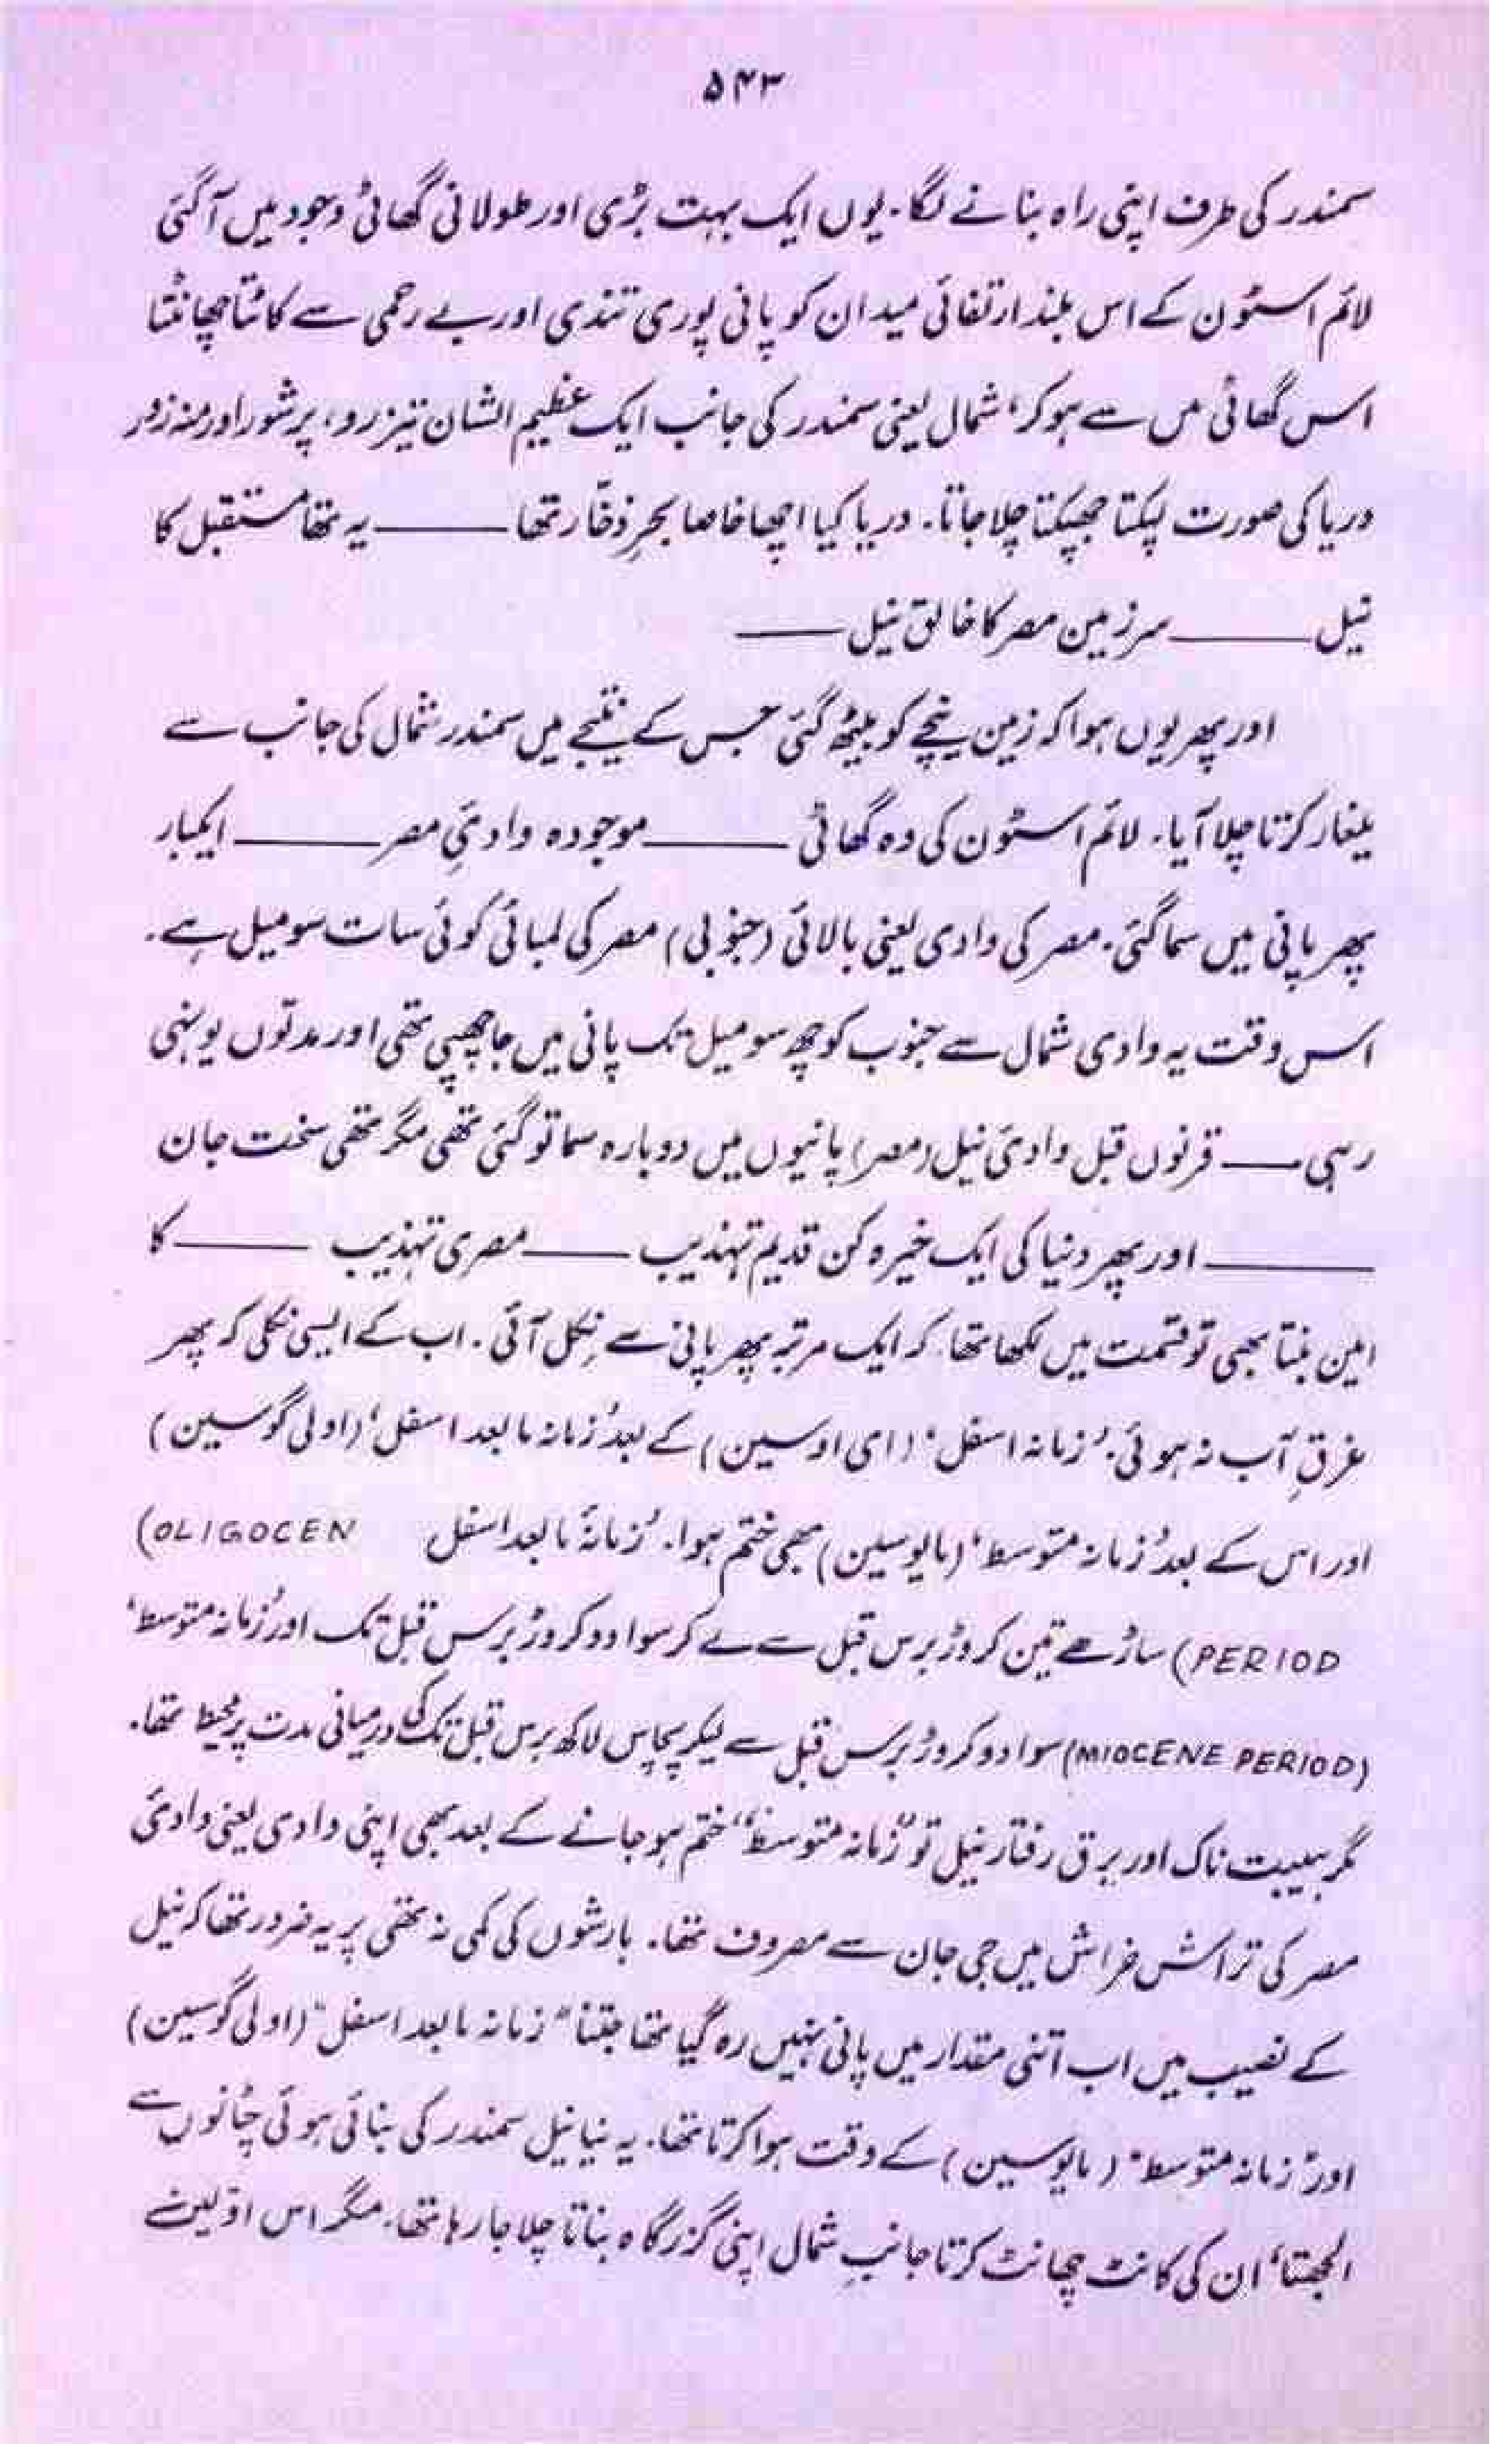 ۵۴۳
سمندر کی طرف اپنی راہ بنانے لگا۔ یوں ایک بہت بڑی اور طولانی گھاٹی وجود میں آگئی
لائم اسٹون کے اس بلند ارتفائی میدان کو پانی پوری تندی اور بے رحمی سے کاٹتا چھانٹتا
اس گھاٹی میں سے ہو کر، شمال یعنی سمندر کی جانب ایک عظیم الشان تیز رو، پرشور اور منہ زور
دریا کی صورت لپکتا جھپکتا چلا جاتا۔ دریا کیا اچھا خاصا بحرِ ذخّار تھا ——— یہ تھا مستقبل کا
نیل ——— سرزمین مصر کا خالق نیل ———
اور پھر یوں ہوا کہ زمین نیچے کو بیٹھ گئی جس کے نتیجے میں سمندر شمال کی جانب سے
یلغار کرتا چلا آیا۔ لائم اسٹون کی وہ گھاٹی ——— موجودہ وادیٔ مصر ——— ایکبار
پھر پانی میں سما گئی۔ مصر کی وادی یعنی بالائی (جنوبی) مصر کی لمبائی کوئی سات سو میل ہے۔
اس وقت یہ وادی شمال سے جنوب کو چھ سو میل تک پانی میں جا چھپی تھی اور مدتوں یونہی
رہی —— قرنوں قبل وادیٔ نیل (مصر) پانیوں میں دوبارہ سما تو گئی تھی مگر تھی سخت جان
——— اور پھر دنیا کی ایک خیرہ کن قدیم تہذیب ——— مصری تہذیب ——— کا
امین بننا بھی تو قسمت میں لکھا تھا کہ ایک مرتبہ پھر پانی سے نکل آئی۔ اب کے ایسی نکلی کہ پھر
غرقِ آب نہ ہوئی۔ ’زمانہ اسفل‘ (ای اوسین) کے بعد ’زمانہ مابعد اسفل‘ (اولی گوسین)
اور اس کے بعد ’زمانہ متوسط‘ (مایوسین) بھی ختم ہوا۔ ’زمانۂ مابعد اسفل (OLIGOCEN
PERIOD) ساڑھے تین کروڑ برس قبل سے لے کر سوا دو کروڑ برس قبل تک اور ’زمانہ متوسط‘
(MIOCENE PERIOD) سوا دو کروڑ برس قبل سے لیکر پچاس لاکھ برس قبل تک کی درمیانی مدت پر محیط تھا۔
مگر ہیبت ناک اور برق رفتار نیل تو ’’زمانہ متوسط‘‘ ختم ہو جانے کے بعد بھی اپنی وادی یعنی وادیٔ
مصر کی تراش خراش میں جی جان سے مصروف تھا۔ بارشوں کی کمی نہ تھی پر یہ ضرور تھا کہ نیل
کے نصیب میں اب اتنی مقدار میں پانی نہیں رہ گیا تھا جتنا "زمانہ مابعد اسفل" (اولی گوسین)
اور ’زمانہ متوسط‘ (مایوسین) کے وقت ہوا کرتا تھا۔ یہ نیا نیل سمندر کی بنائی ہوئی چٹانوں سے
الجھتا، ان کی کانٹ چھانٹ کرتا جانبِ شمال اپنی گزرگاہ بناتا چلا جا رہا تھا۔ مگر اس اوّلین